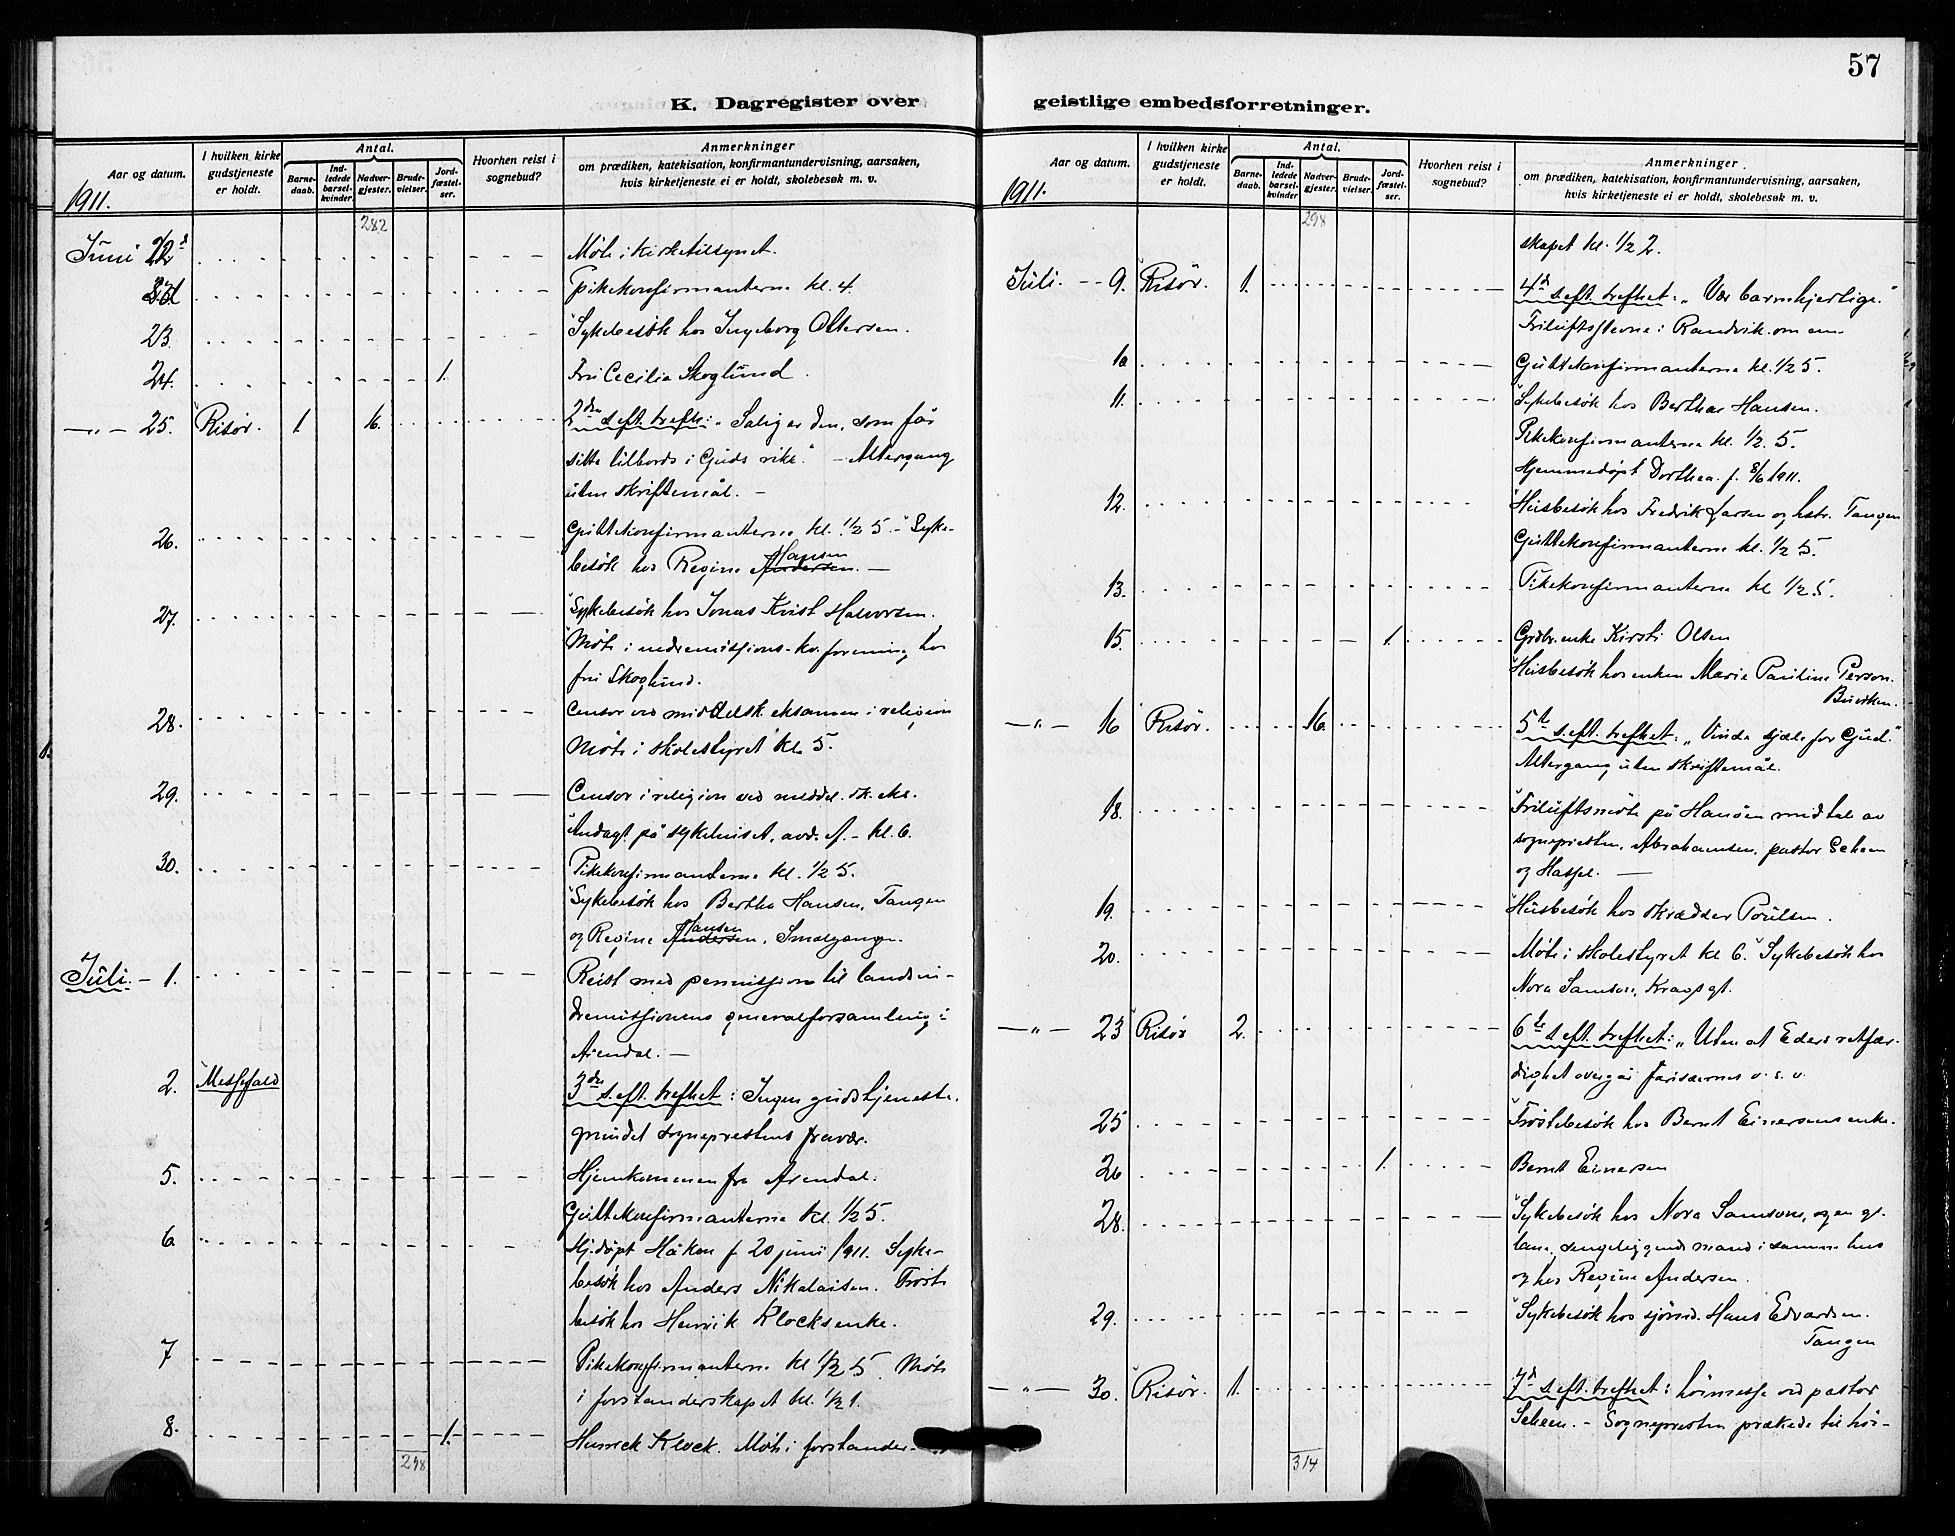 57
K. Dagregister over
geistlige embedsforretninger.
Aar og datum.
I hvilken kirke gudstjeneste er holdt.
Antal.
Barne-daab.
Ind-ledede barsel-kvinder
Nadver-gjester.
Brude-vielser.
Jord-fæstel-ser.
Hvorhen reist i sognebud?
Anmerkninger
om prædiken, katekisation, konfirmantundervisning, aarsaken,
hvis kirketjeneste ei er holdt, skolebesøk m. v.
1911.
282
Juni 22 Møte i kirketilsynet.
Pikekonfirmanterne kl. 4.
23. Sykebesøk hos Ingeborg Ottersen.
24. 1. Fru Cecilia Skoglund.
—„— 25. Risør. 1. 16. 2den s. eft. trefh.: „Salig er den, som får
sitte tilbords i Guds rike." – Altergang
uten skriftemål. –
26. Guttekonfirmanterne kl. 1/2 5 – Syke-
besøk hos Regine Andersen Hansen. –
27. Sykebesøk hos Jonas Kvist Halvorsen.
Møte i indremissions-kv. forening hos
fru Skoglund.
28. Censor ved middelsk. eksamen i religion
Møte i skolestyret kl. 5.
29. Censor i religion ved middel. sk. eks.
Andagt på sykehuset, avd. A. – kl. 6.
30. Pikekonfirmanterne kl. 1/2 5.
Sykebesøk hos Bertha Hansen, Tangen
og Regine Andersen Hansen, Smalgangen.
Juli – 1. Reist med permission til landsin-
dremissionens generalforsamling i
Arendal. –
2. Messefald 3die s. eft. trefhet: Ingen gudstjeneste.
grundet sogneprestens fravær.
5. Hjemkommen fra Arendal.
Guttekonfirmanterne kl. 1/2 5.
6 Hj. døpt Håkon f. 20 juni 1911. Syke-
besøk hos Anders Nikolaisen. Trøste
besøk hos Henrik Klocks enke.
7 Pikekonfirmanterne kl 1/2 5. Møte
i forstanderskapet kl. 1/2 1.
8. 1. Henrick Klock. Møte i forstander-
298
Aar og datum.
I hvilken kirke gudstjeneste er holdt.
Antal.
Barne-daab.
Ind-ledede barsel-kvinder
Nadver-gjester.
Brude-vielser.
Jord-fæstel-ser.
Hvorhen reist i sognebud?
Anmerkninger.
om prædiken, katekisation, konfirmantundervisning, aarsaken,
hvis kirketjeneste ei er holdt, skolebesøk m. v.
1911.
298
skapet kl. 1/2 2.
Juli. – 9. Risør. 1. 4de s. eft. trefhet: „Vær barmhjertige."
Friluftsstevne i Randvik
10 Guttekonfirmanterne kl. 1/2 5.
11. Sykebesøk hos Berthar Hansen.
Pikekonfirmanterne kl. 1/2 5.
Hjemmedøpt Dorthea f. 8/6 1911.
12. Husbesøk hos Fredrik Larsen og hstr. Tangen
Guttekonfirmanterne kl. 1/2 5.
13. Pikekonfirmanterne kl 1/2 5.
15. 1. Grdbr. enke Kirsti Olsen
Husbesøk hos enken Marie Pauline Person.
Buviken.
—„— 16 Risør. 16. 5te s. eft. trefhet: „Vinde sjæle for Gud."
Altergang uten skriftemål.
18. Friluftsmøte på Hanøen med tale av
sognepresten, Abrahamsen, pastor Scheen
og Hassel. —
19. Husbesøk hos skrædder Poulsen.
20. Møte i skolestyret kl 6. Sykebesøk hos
Nora Samson, Kragsgt.
—„— 23 Risør 2. 6te s. eft. trefhet: „Uden at Eders retfær-
dighet overgår farisæernes o. s. v.
25 Trøstebesøk hos Bernt Einersens enke.
26 1. Bernt Einersen
28. Sykebesøk hos Nora Samson, og en gl.
lam, sengeliggende mand i samme hus
og hos Regine Andersen.
29. Sykebesøk hos sjømd. Hans Edvardsen.
Tangen
—„— 30. Risør. 1. 7de s. eft. trefhet: høimesse ved pastor
Scheen. – Sognepresten prækede til høi-
314